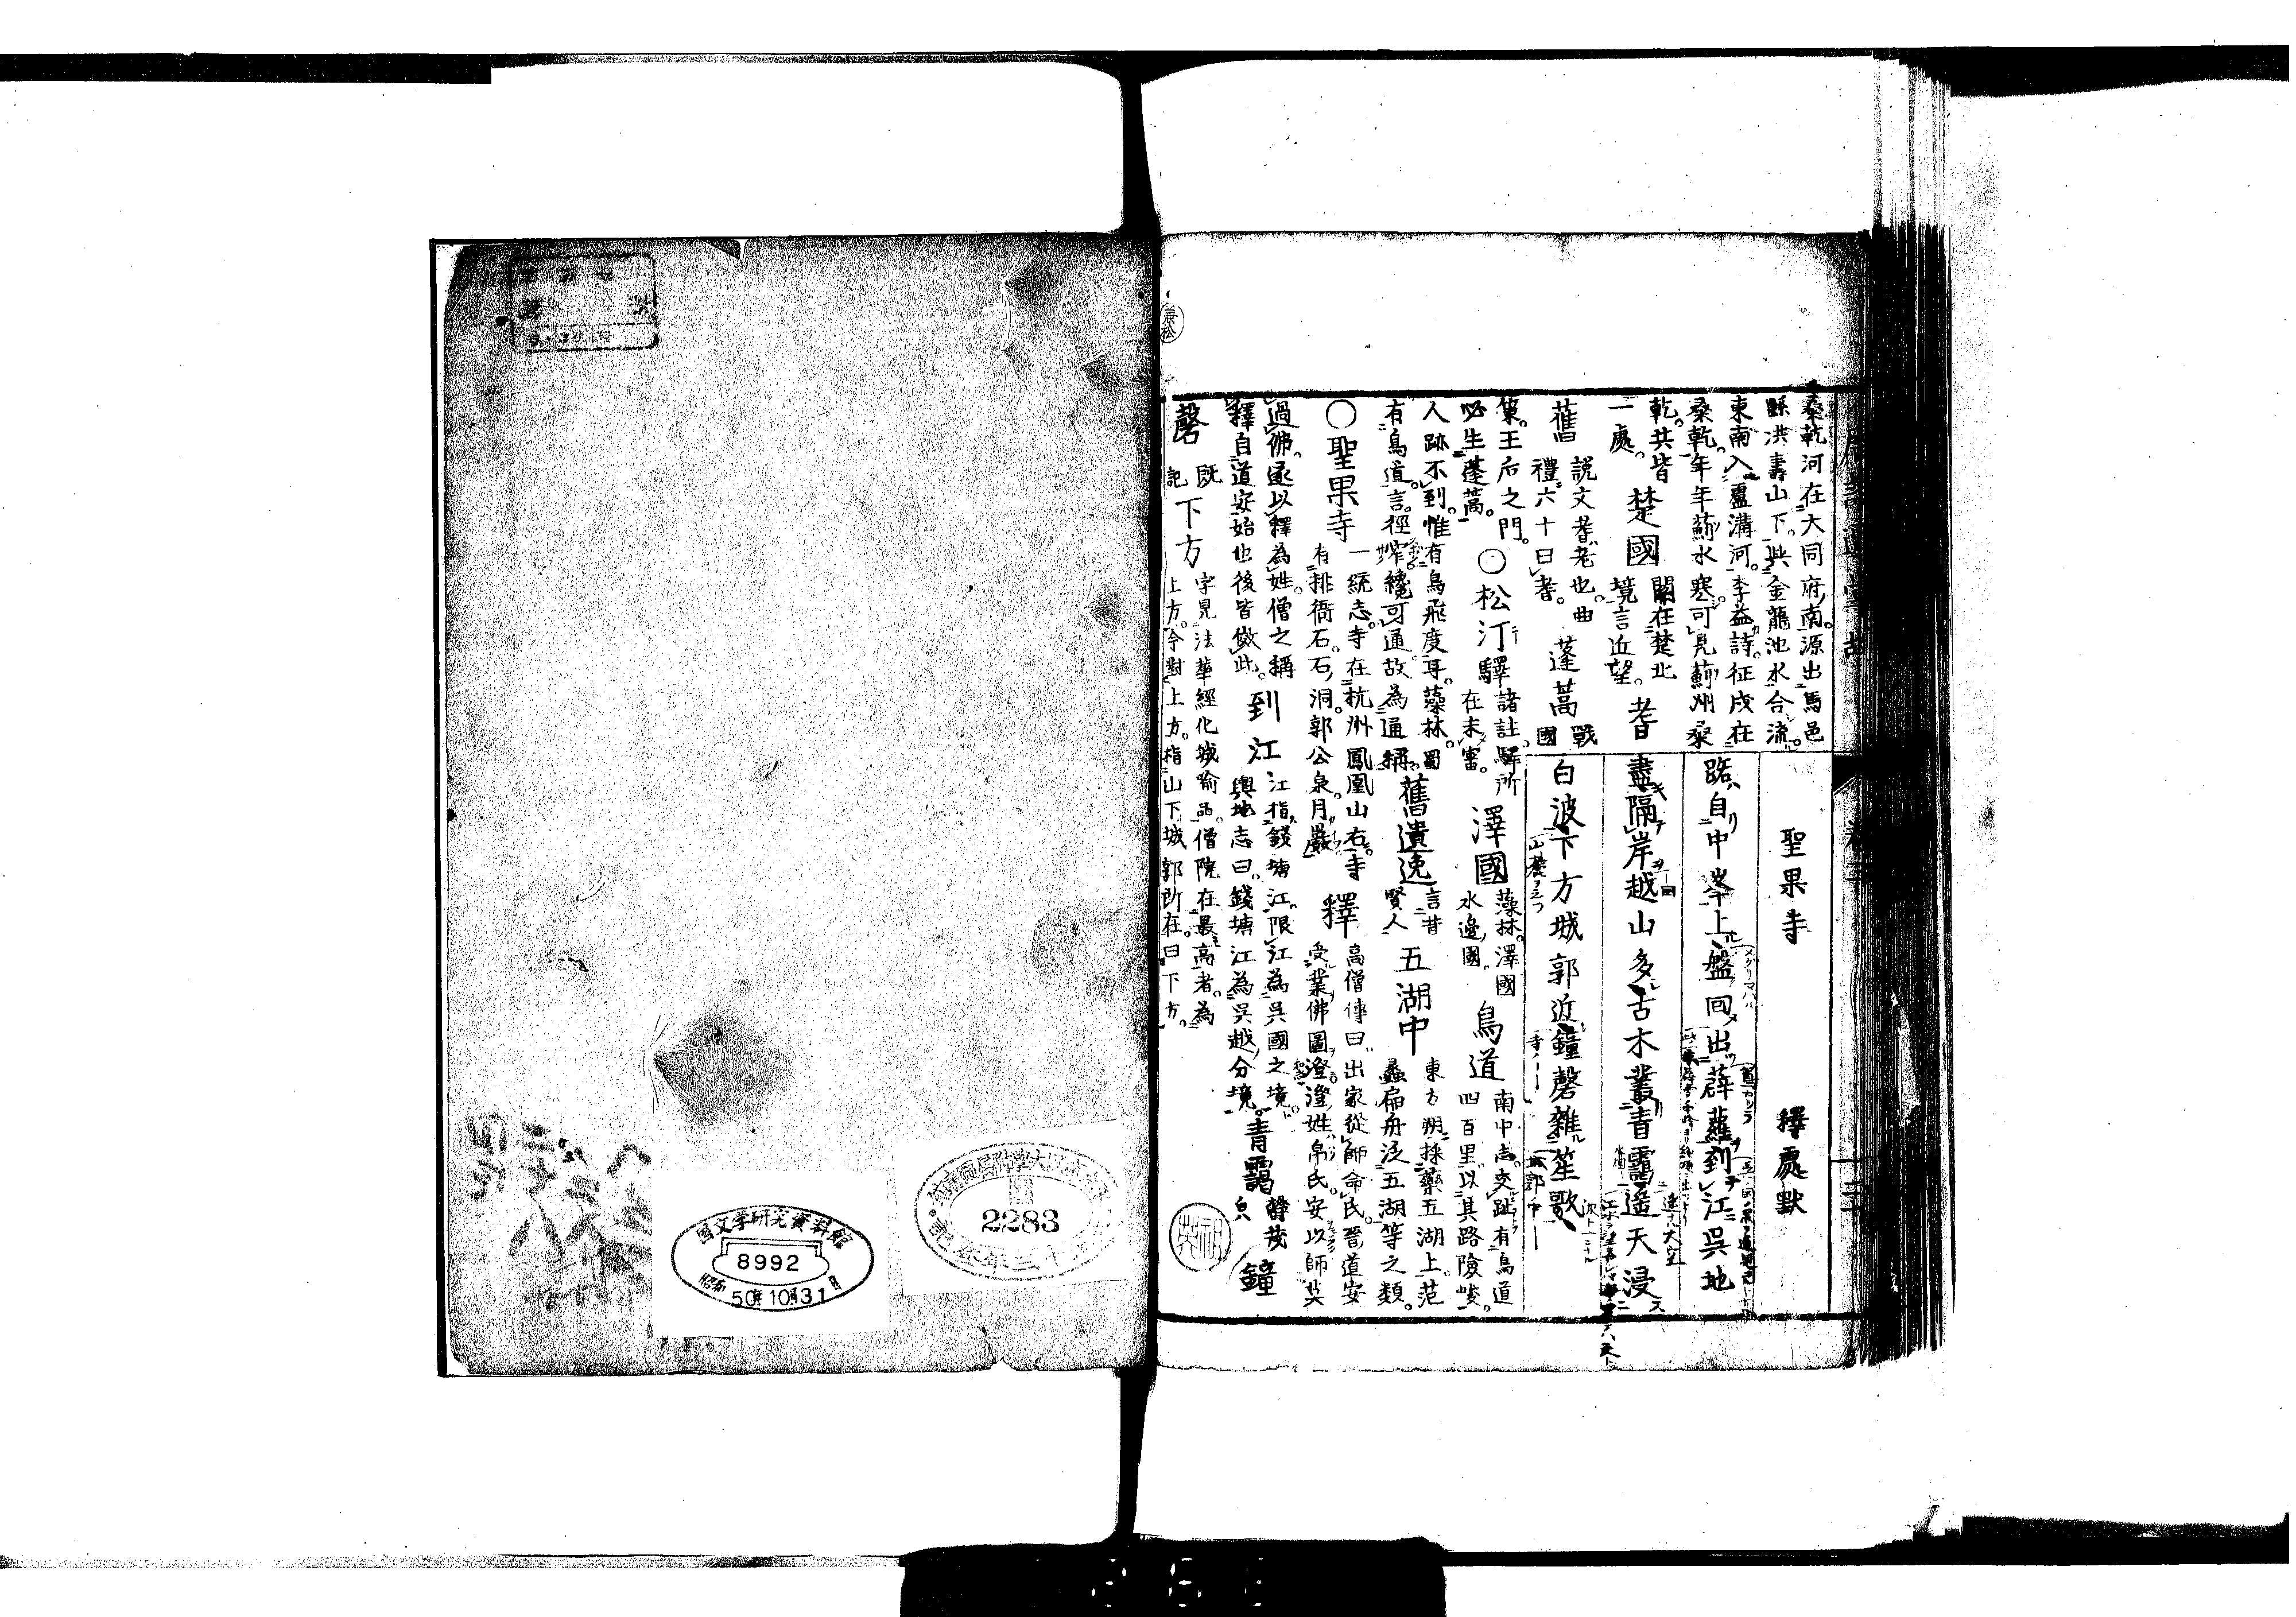 桑乾河在大同府南源出馬邑
縣洪濤山下與金龍池水合流
東南入盧溝河李益詩征戍在
桑乾年年薊水寒可見薊州桑
乾共皆
一處
楚國
關在楚北
境言近望
耆
舊
說文耆老也曲
禮六十曰耆
蓬蒿
戰
國
策王后之門
必生蓬蒿
○松汀驛
諸註驛所
在未審
澤國
藻林澤國
水邊國
鳥道
南中志交趾有鳥道
四百里以其路險峻
人跡不到惟有鳥飛度耳藻林蜀
有鳥道言徑窄纔可通故為通稱
舊遺逸
言昔
賢人
五湖中
東方朔採藥五湖上范
蠡扁舟泛五湖等之類
○聖果寺
一統志寺在杭州鳳凰山右寺
有排衙石石洞郭公泉月巖
釋
高僧傳曰出家從師命氏晉道安
受業佛圖澄澄姓帛氏安以師莫
過佛遂以釋為姓僧之稱
釋自道安始也後皆倣此
到江
江指錢塘江限江為吳國之境
輿地志曰錢塘江為吳越分境
青靄
鐘
磬
既
記
下方
字見法華經化城喻品僧院在最高者為
上方今對上方指山下城郭所在曰下方
聖果寺 釋處默
路自中峯上盤回出薜蘿到江吳地
盡隔岸越山多古木叢青靄遙天浸
白波下方城郭近鐘磬雜笙歌
2283
国文学研究資料館
8992
昭和
50年10月31日